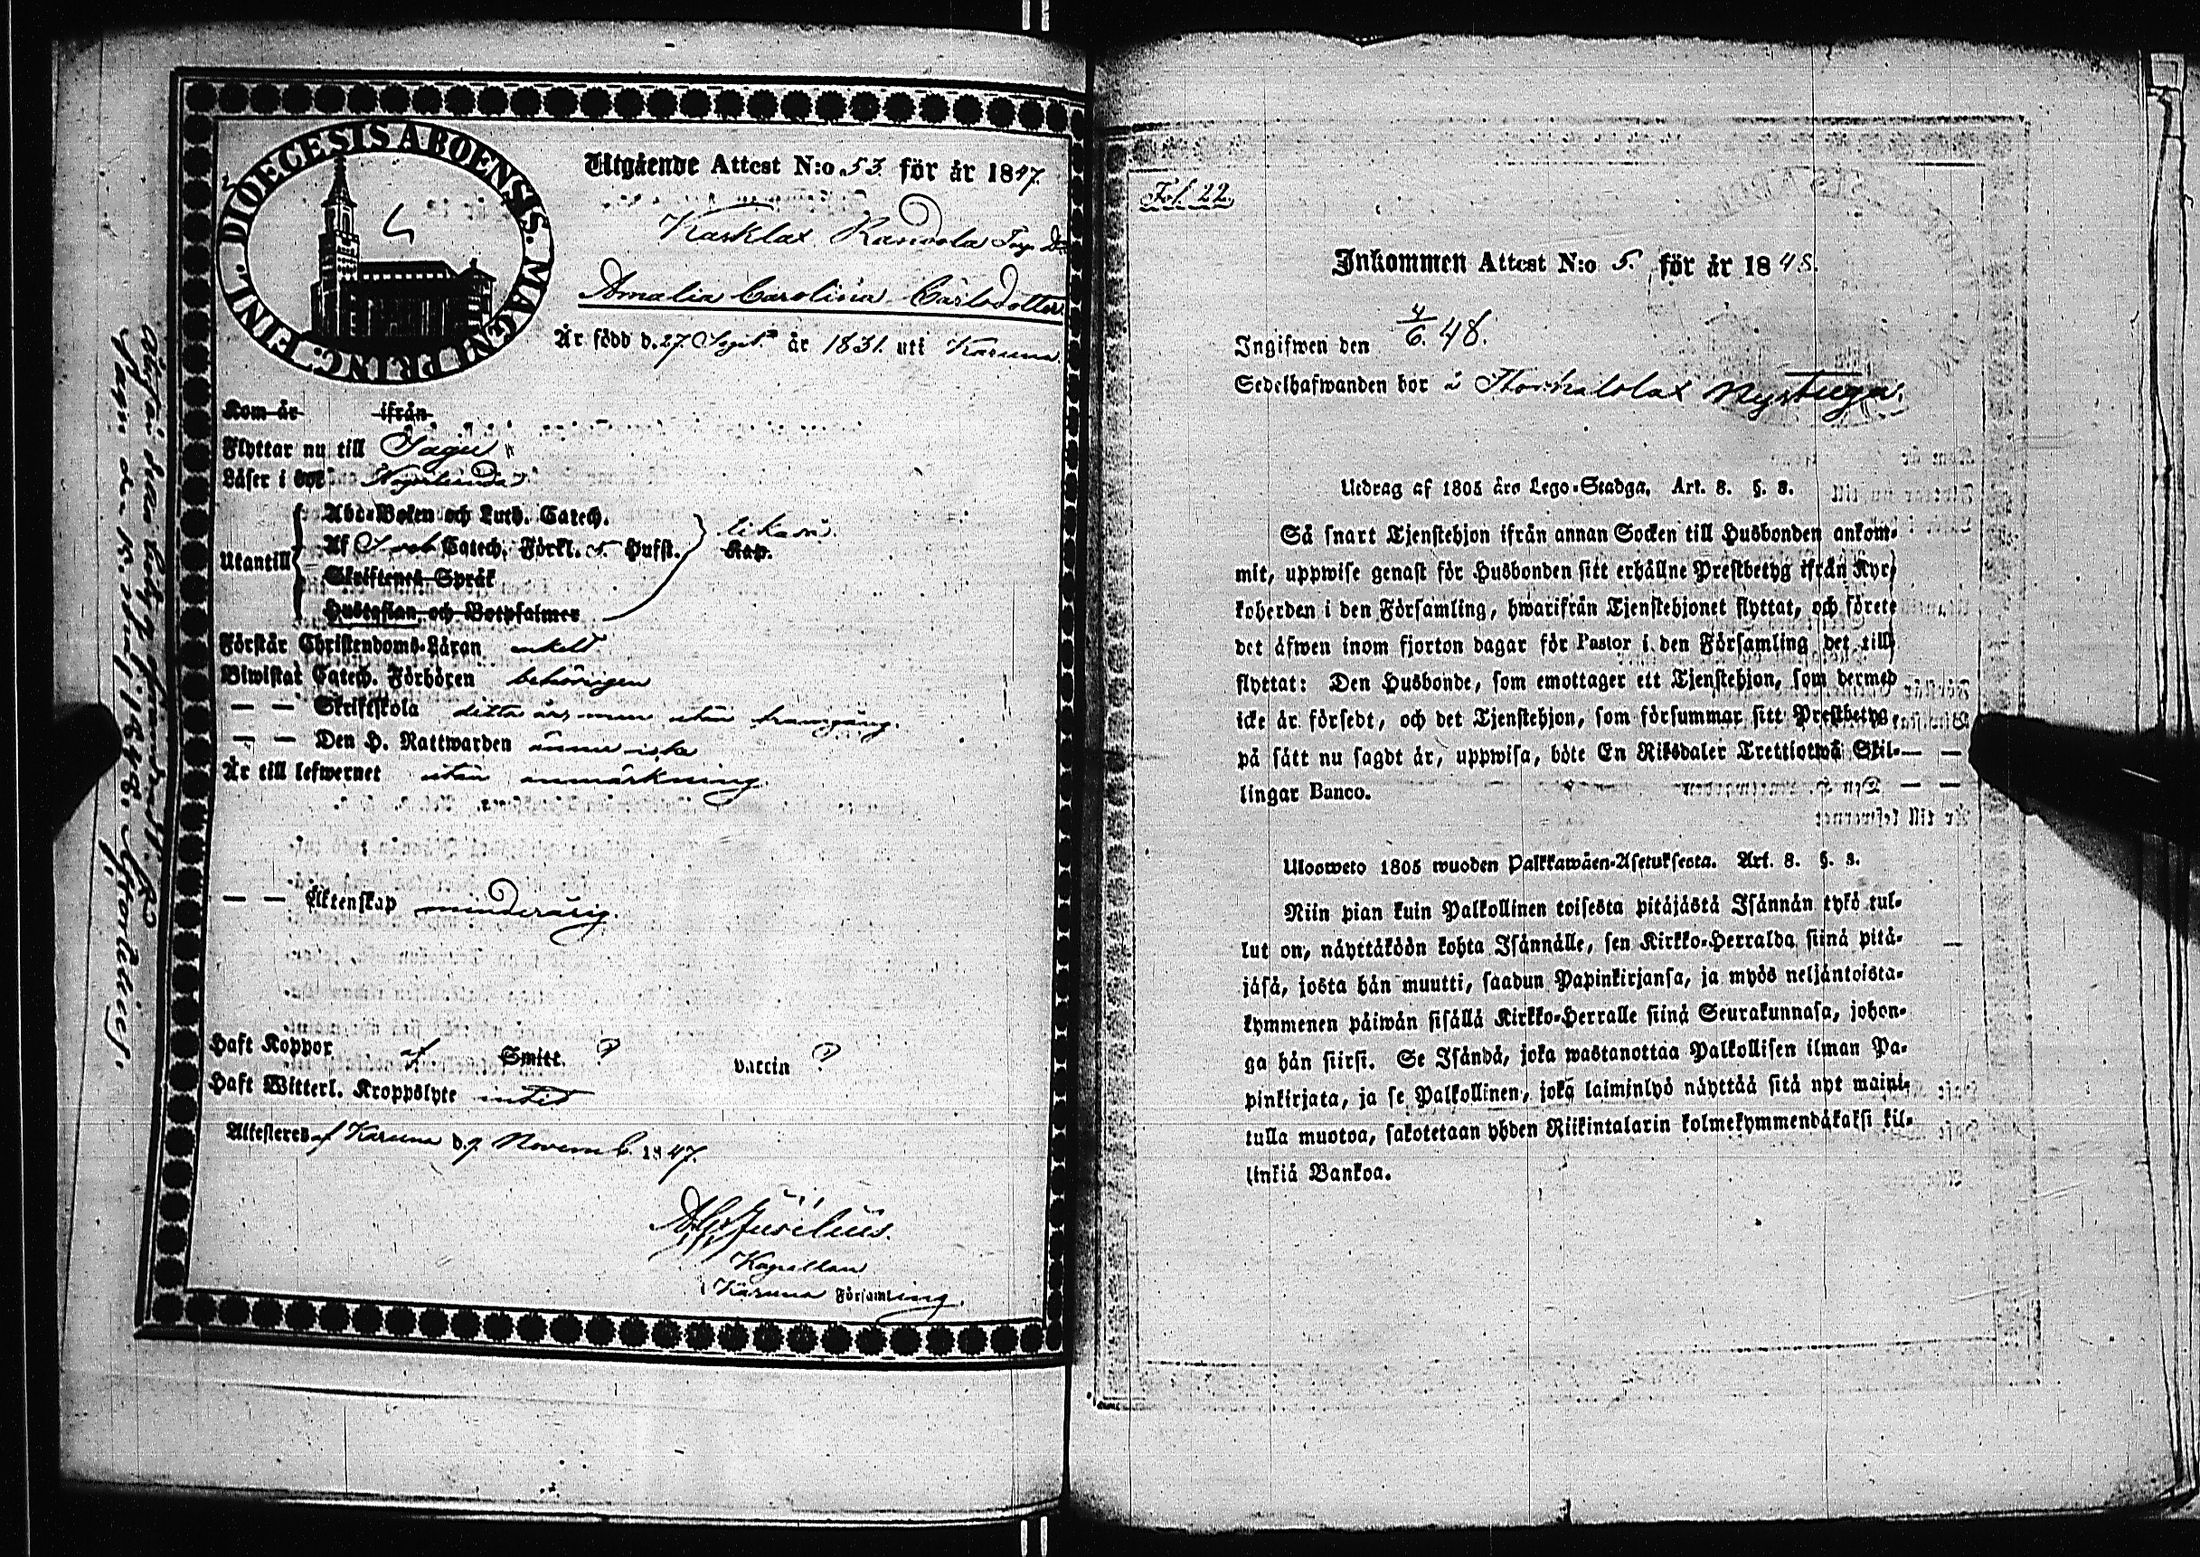 FINL. DIOECESIS ABOENSIS. MAGNI PRINC.
Utgående Attest N:o 53. för år 1847.
Karklax
Amalia Carolina Carlsdotter
Är född d. 27 Sept. år 1831. uti Karuna
Kom år ifrån
Flyttar nu till Sagu
Läser i bok
Utantill
Abc-Boken och Luth. Catech.
Af Catech. Förkl. Husft. Kap.
Skriftenes Språk
Hustaflan och Botpsalmer
Förstår Christendoms-Läran enkelt
Biwistat Catech. Förhören behörigen
— — Skriftskola detta år, men utan framgång.
— — Den H. Nattwarden ännu icke
Är till lefwernet utan anmärkning.
— — Äktenskap minderårig.
Haft Koppor af Smitt. ? vaccin ?
Haft Witterl. Kroppslyte intet
Attesteras af Karuna d. 9 Novemb. 1847.
Kapellan
i Karuna Församling.
Fol. 22.
Inkommen Attest N:o 5. för år 1848.
Ingifwen den 4/6. 48.
Sedelhafwanden bor å Nystuga.
Utdrag af 1805 års Lego-Stadga. Art. 8. §. 3.
Så snart Tjenstehjon ifrån annan Socken till Husbonden ankom-
mit, uppwise genast för Husbonden sitt erhållne Prestbetyg ifrån Kyr-
koherden i den Församling, hwarifrån Tjenstehjonet flyttat, och förete
det äfwen inom fjorton dagar för Pastor i den Församling det till
flyttat: Den Husbonde, som emottager ett Tjenstehjon, som dermed
icke är försedt, och det Tjenstehjon, som försummar sitt Prestbetyg,
på sätt nu sagdt är, uppwisa, böte En Riksdaler Trettiotwå Skil-
lingar Banco.
Ulosweto 1805 wuoden Palkkawäen-Asetuksesta. Art. 8. §. 3.
Niin pian kuin Palkollinen toisesta pitäjästä Isännän tykö tul-
lut on, näyttäköön kohta Isännälle, sen Kirkko-Herralda siinä pitä-
jäsä, josta hän muutti, saadun Papinkirjansa, ja myös neljäntoista-
kymmenen päiwän sisällä Kirkko-Herralle siinä Seurakunnasa, johon-
ga hän siirsi. Se Isändä, joka wastanottaa Palkollisen ilman Pa-
pinkirjata, ja se Palkollinen, joka laiminlyö näyttää sitä nyt maini-
tulla muotoa, sakotetaan yhden Riikintalarin kolmekymmendäkaksi kil-
linkiä Bankoa.